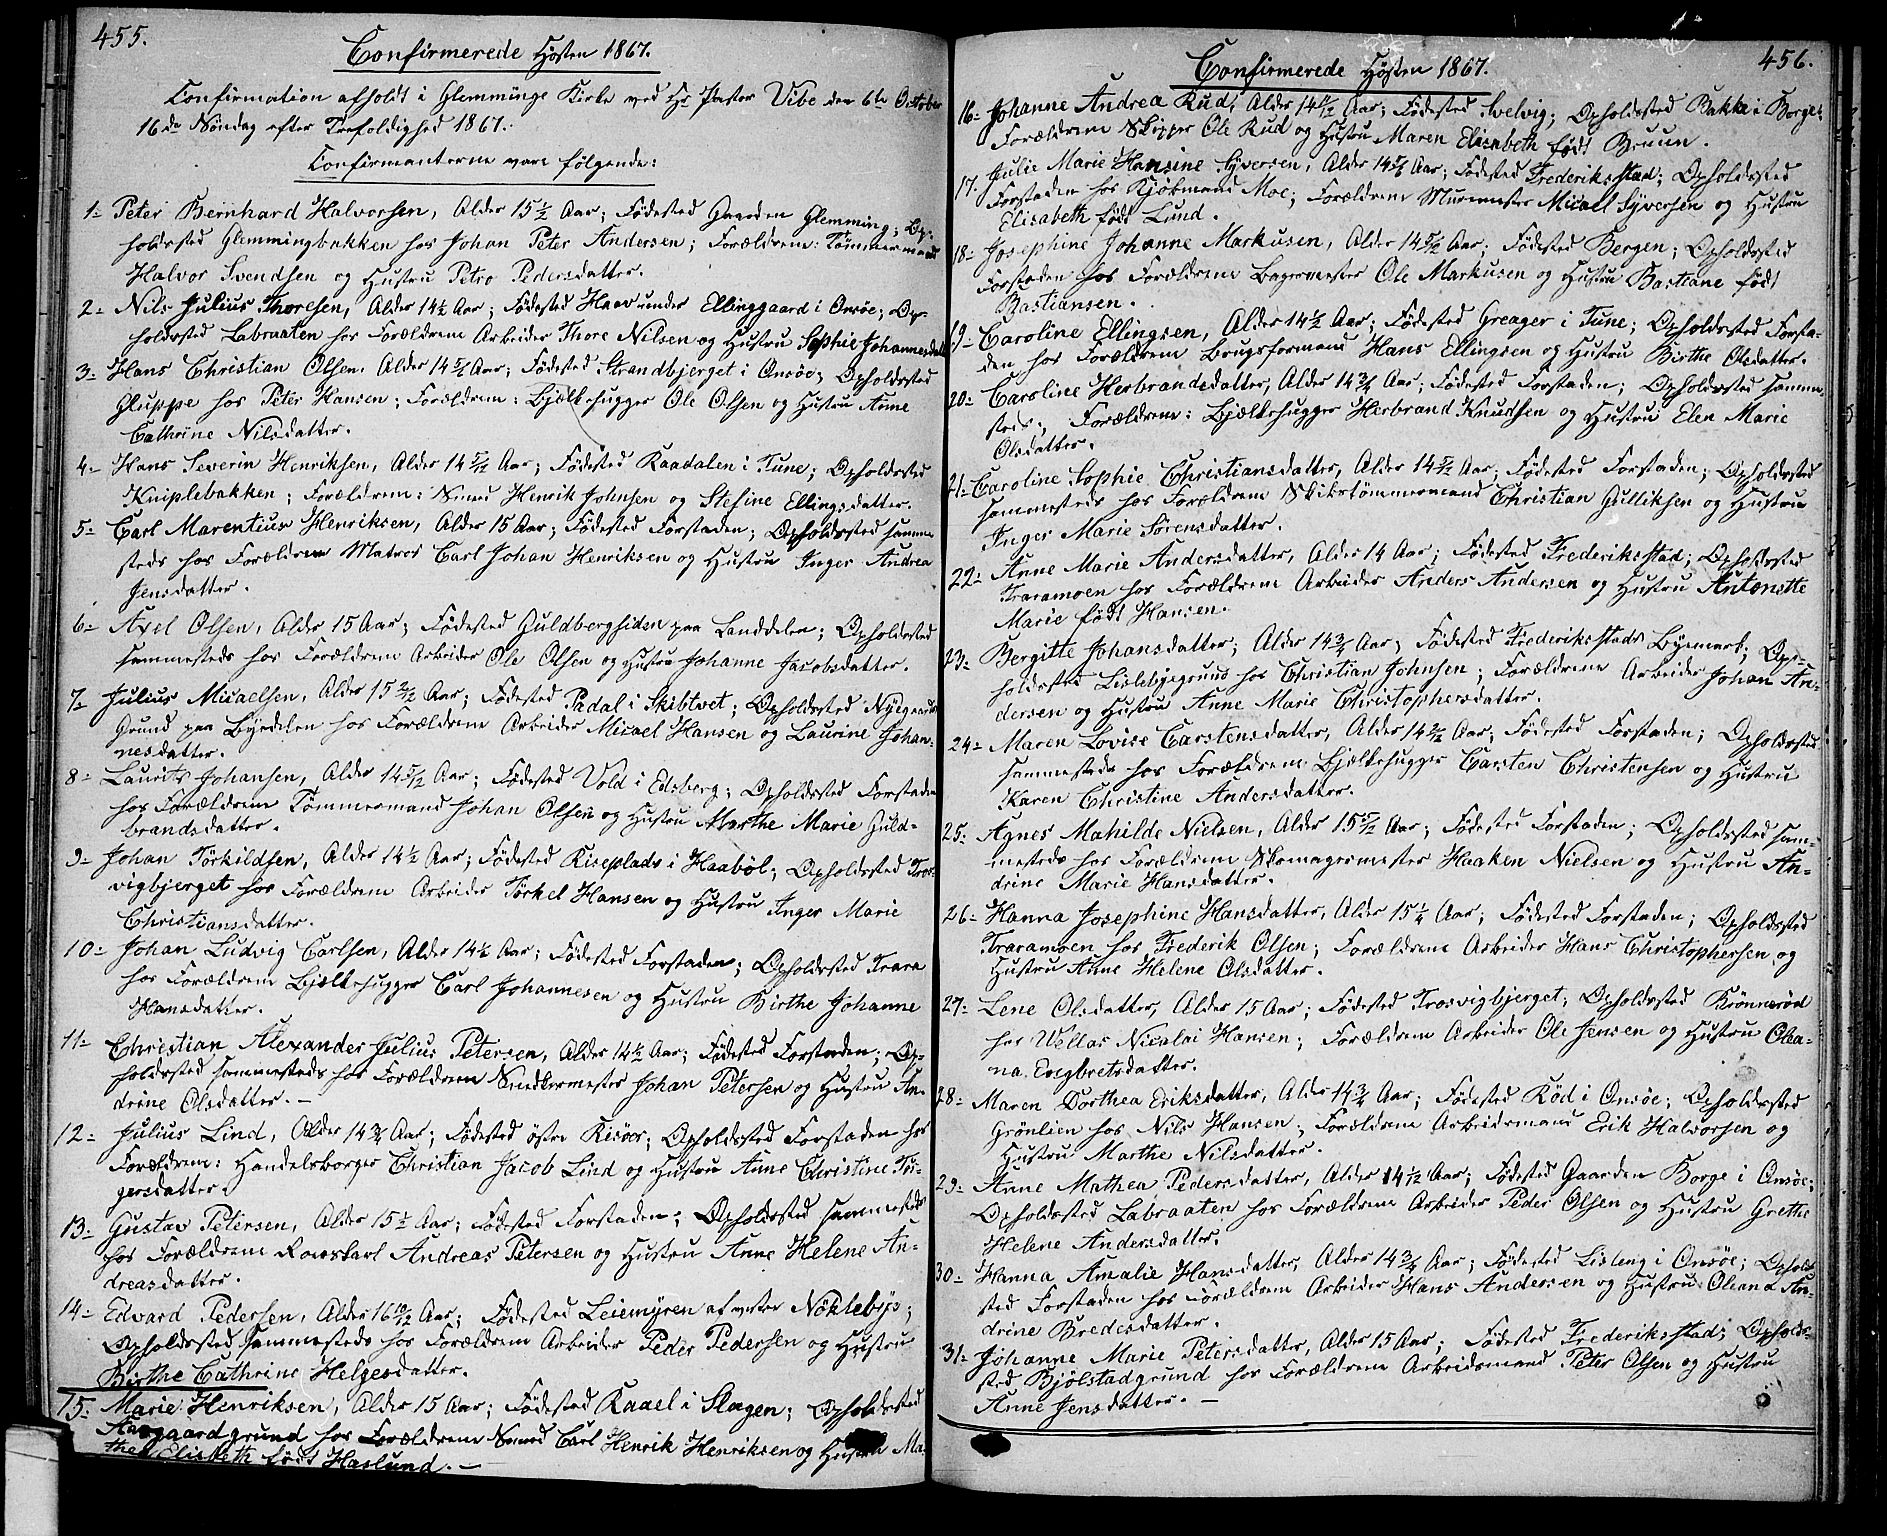 455.
Confirmerede Høsten 1867.
Confirmation afholdt i Glemminge Kirke ved Hr Pastor Vibe den 6te October
16de Søndag efter Trefoldighed 1867.
Confirmanterne vare følgende:
1= Peter Bernhard Halvorsen, Alder 15 1/2 Aar; Fødested Gaarden Glemming; Op-
holdssted Glemmingbakken hos Johan Peter Andersen; Forældrene: Tømmermand
Halvor Svendsen og Hustru Petro Pedersdatter.
2= Nils Julius Thoresen, Alder 14 1/2 Aar; Fødested Haav under Ellinggaard i Onsøe; Op-
holdssted Labraaten hos Forældrene Arbeider Thore Nilsen og Hustru Sophie Johannesdatter
3= Hans Christian Olsen, Alder 14 5/6 Aar; Fødested Strandbjerget i Onsøe; Opholdssted
Gluppe hos Peter Hansen; Forældrene: Bjælkehugger Ole Olsen og Hustru Anne
Cathrine Nilsdatter.
4= Hans Severin Henriksen, Alder 14 5/12 Aar; Fødested Raadalen i Tune; Opholdssted
Kniplebakken; Forældrene: Smed Henrik Johnsen og Stefine Ellingsdatter.
5= Carl Marentius Henriksen, Alder 15 Aar; Fødested Forstaden; Opholdssted samme-
steds hos Forældrene Matros Carl Johan Henriksen og Hustru Inger Andrea
Jensdatter.
6= Axel Olsen, Alder 15 Aar; Fødested Guldbergsiden paa Landdelen; Opholdssted
sammesteds hos Forældrene Arbeider Ole Olsen og Hustru Johanne Jacobsdatter.
7= Julius Micaelsen, Alder 15 2/12 Aar; Fødested Padal i Skibtvet; Opholdssted Nygaards
Grund paa Byedelen hos Forældrene Arbeider Micael Hansen og Laurine Johan-
nesdatter.
8= Laurits Johansen, Alder 14 5/12 Aar; Fødested Vold i Edsberg; Opholdssted Forstaden
hos Forældrene Tømmermand Johan Olsen og Hustru Marthe Marie Guld-
brandsdatter.
9= Johan Törkildsen, Alder 14 1/2 Aar; Fødested Riseplads i Haaböl; Opholdssted Tros-
vigbjerget hos Forældrene Arbeider Törkel Hansen og Hustru Inger Marie
Christiansdatter.
10= Johan Ludvig Carlsen, Alder 14 1/2 Aar; Fødested Forstaden; Opholdssted Trara
hos Forældrene Bjælkehugger Carl Johannesen og Hustru Birthe Johanne
Hansdatter.
11= Christian Alexander Julius Petersen, Alder 14 1/2 Aar; Fødested Forstaden; Op-
holdssted sammesteds hos Forældrene Snedkermester Johan Petersen og Hustru An-
drine Olsdatter. —
12= Julius Lind, Alder 14 3/4 Aar; Fødested östre Risöer; Opholdssted Forstaden hos
Forældrene: Handelsborger Christian Jacob Lind og Hustru Anne Christine Tör-
gersdatter.
13= Gustav Petersen, Alder 15 1/2 Aar; Fødested Forstaden; Opholdssted sammesteds
hos Forældrene Andreas Petersen og Hustru Anne Helene An-
dreasdatter.
14= Edvard Pedersen, Alder 16 10/12 Aar; Fødested Leiemyren af vestre Nöklebye;
Opholdssted sammesteds hos Forældrene Arbeider Peder Pedersen og Hustru
Birthe Cathrine Helgesdatter.
15= Marie Henriksen, Alder 15 Aar; Fødested Raael i Slagen; Opholdssted
Aasgaardgrund hos Forældrene Smed Carl Henrik Henriksen og Hustru Ma-
the Elisbeth født Haslund. —
456.
Confirmerede Høsten 1867.
16= Johanne Andrea Rud, Alder 14 11/12 Aar; Fødested Svelvig; Opholdssted Bakke i Borge;
Forældrene Skipper Ole Rud og Hustru Maren Elisabeth født Bruun.
17. Julie Marie Hansine Syversen, Alder 14 5/6 Aar; Fødested Frederiksstad; Opholdssted
Forstaden hos Kjøbmand Moe; Forældrene Murmester Micael Syversen og Hustru
Elisabeth født Lund.
18= Josephine Johanne Markusen, Alder 14 5/12 Aar; Fødested Bergen; Opholdssted
Forstaden hos Forældrene Bagermester Ole Markusen og Hustru Bastiane født
Bastiansen.
19= Caroline Ellingsen, Alder 14 1/2 Aar; Fødested Greager i Tune; Opholdssted Forsta-
den hos Forældrene Brugsformand Hans Ellingsen og Hustru Birthe Olsdatter.
20= Caroline Herbrandsdatter, Alder 14 3/4 Aar; Fødested Forstaden; Opholdssted samme-
steds; Forældrene: Bjælkehugger Herbrand Knudsen og Hustru Elen Marie
Olsdatter.
21= Caroline Sophie Christiansdatter, Alder 14 5/12 Aar; Fødested Forstaden; Opholdssted
sammesteds hos Forældrene Skibstömmermand Christian Gulliksen og Hustru
Inger Marie Sörensdatter.
22= Anne Marie Andersdatter, Alder 14 Aar; Fødested Frederiksstad; Opholdssted
Traramoen hos Forældrene Arbeider Anders Andersen og Hustru Antonette
Marie født Hansen.
23= Bergitte Johansdatter; Alder 14 3/4 Aar; Fødested Frederiksstads Byemark; Op-
holdssted Lislebyegrund hos Christian Johnsen; Forældrene Arbeider Johan An-
dersen og Hustru Anne Marie Christophersdatter.
24= Maren Lovise Carstensdatter, Alder 14 2/12 Aar; Fødested Forstaden; Opholdssted
sammesteds hos Forældrene Bjælkehugger Carsten Christensen og Hustru
Karen Christine Andersdatter.
25= Agnes Mathilde Nielsen, Alder 15 5/12 Aar; Fødested Forstaden; Opholdssted sam-
mesteds hos Forældrene Skomagermester Haaken Nielsen og Hustru An-
drine Marie Hansdatter.
26= Hanna Josephine Hansdatter, Alder 15 1/4 Aar; Fødested Forstaden; Opholdssted
Traramoen hos Frederik Olsen; Forældrene Arbeider Hans Christophersen og
Hustru Anne Helene Olsdatter.
27= Lene Olsdatter, Alder 15 Aar; Fødested Trosvigbjerget; Opholdssted Brönneröd
hos Nicolai Hansen; Forældrene Arbeider Ole Jensen og Hustru Olea-
na Engbretsdatter.
28= Maren Dorthea Eriksdatter, Alder 14 3/4 Aar; Fødested Röd i Onsøe; Opholdssted
Grönlien hos Nils Hansen; Forældrene Arbeidsmand Erik Halvorsen og
Hustru Marthe Nilsdatter.
29= Anne Mathea Pedersdatter, Alder 14 1/12 Aar; Fødested Gaarden Borge i Onsøe;
Opholdssted Labraaten hos Forældrene Arbeider Peder Olsen og Hustru Grethe
Helene Andersdatter.
30= Hanna Amalie Hansdatter, Alder 14 3/4 Aar; Fødested Lisleng i Onsøe; Opholds-
sted Forstaden hos Forældrene Arbeider Hans Andersen og Hustru Oleana An-
drine Bredesdatter.
31= Johanne Marie Petersdatter, Alder 15 Aar; Fødested Frederiksstad; Opholds-
sted Bjölstadgrund hos Forældrene Arbeidsmand Peter Olsen og Hustru
Anne Jensdatter. —